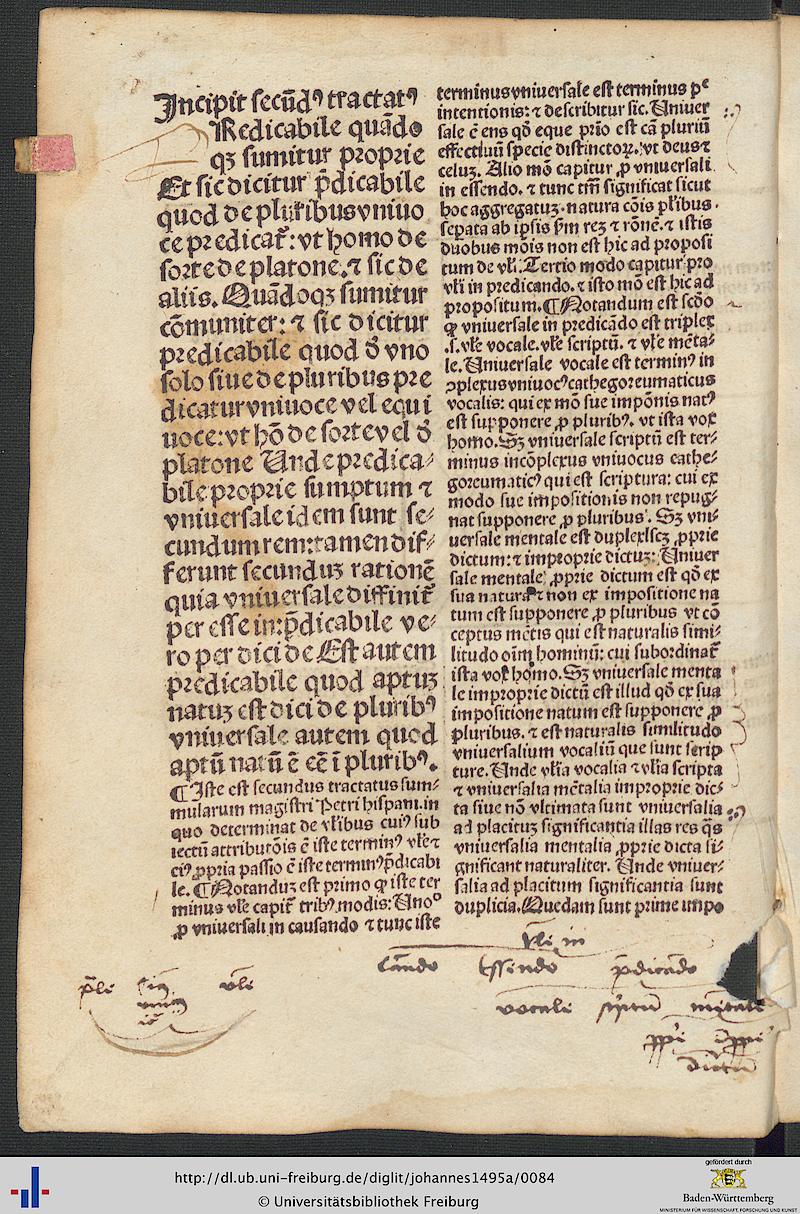 Incipit secūdꝰ tractatꝰ
Redicabile quādo
qꝫ sumitur proprie
Et sic dicitur p̄dicabile
quod de pluribus vniuo
ce predicat᷑: vt homo de
sorte de platone. ⁊ sic de
aliis. Quādoqꝫ sumitur
cōmuniter: ⁊ sic dicitur
predicabile quod ď vno
solo siue de pluribus pre
dicatur vniuoce vel equi
uoce: vt hō de sorte vel ď
platone Unde predica⸗
bile proprie sumptum ⁊
vniuersale idem sunt se⸗
cundum rem: tamen dif⸗
ferunt secunduꝫ rationē
quia vniuersale diffinit᷑
per esse in: p̄dicabile ve⸗
ro per dici de Est autem
predicabile quod aptuꝫ
natuꝫ est dici de pluribꝰ
vniuersale autem quod
aptū natū ē eē ī pluribꝰ.
¶ Iste est secundus tractatus sum⸗
mularum magistri Petri hispani. in
quo determinat de vl̄ibus cuiꝰ sub
iectū attributōis ē iste terminꝰ vl̄e ⁊
eiꝰ ꝓpria passio ē iste terminꝰ p̄dicabi
le. ¶ Notanduꝫ est primo ꝙ iste ter
minus vl̄e capit᷑ tribꝰ modis: Unoᵒ
ꝓ vniuersali in causando ⁊ tunc iste
terminus vniuersale est terminus pᵉ
intentionis: ⁊ describitur sic. Uniuer
sale ē ens qď eque prīo est cā pluriū
effectiuū specie distinctoꝝ. vt deus ⁊
celuꝫ. Alio mō capitur ꝓ vniuersali
in essendo. ⁊ tunc tm̄ significat sicut
hoc aggregatuꝫ. natura cōis pl̄ibus
sepata ab ip̄sis ẜm reꝫ ⁊ rōnē. ⁊ istis
duobus mōis non est hic ad proposi
tum de vl̄i. Tertio modo capitur pro
vl̄i in predicando. ⁊ isto mō est hic ad
propositum. ¶ Notandum est scďo
ꝙ vniuersale in predicādo est triplex
.s. vl̄e vocale. vl̄e scriptū. ⁊ vl̄e mēta⸗
le. Uniuersale vocale est terminꝰ in
ↄplexus vniuocꝰ cathegoreumaticus
vocalis: qui ex mō sue impōnis natꝰ
est supponere ꝓ pluribꝰ. vt ista vox
homo. Sꝫ vniuersale scriptū est ter⸗
minus incōplexus vniuocus cathe⸗
goreumaticꝰ qui est scriptura: cui ex
modo sue impositionis non repug⸗
nat supponere ꝓ pluribus. Sꝫ vni⸗
uersale mentale est duplex scꝫ ꝓprie
dictum: ⁊ improprie dictuꝫ: Uniuer
sale mentale ꝓprie dictum est qď ex
sua natura ⁊ non ex impositione na
tum est supponere ꝓ pluribus vt cō
ceptus mētis qui est naturalis simi⸗
litudo oīm hominū: cui subordinat᷑
ista vox homo. Sꝫ vniuersale menta
le improprie dictū est illud qď ex sua
impositione natum est supponere ꝓ
pluribus. ⁊ est naturalis similitudo
vniuersalium vocaliū que sunt scrip
ture. Unde vl̄ia vocalia ⁊ vl̄ia scripta
⁊ vniuersalia mētalia improprie dic⸗
ta siue nō vltimata sunt vniuersalia
ad placituꝫ significantia illas res q̄s
vniuersalia mentalia ꝓprie dicta si⸗
gnificant naturaliter. Unde vniuer⸗
salia ad placitum significantia sunt
duplicia. Quedam sunt prime impo
vl̄e in
cāndo Essendo p̄dicādo
vl̄e
vocale sc̄ptū mētale
dictū
http://dl.ub.uni-freiburg.de/diglit/johannes1495a/0084
© Universitätsbibliothek Freiburg
gefördert durch
Baden-Württemberg
MINISTERIUM FÜR WISSENSCHAFT, FORSCHUNG UND KUNST